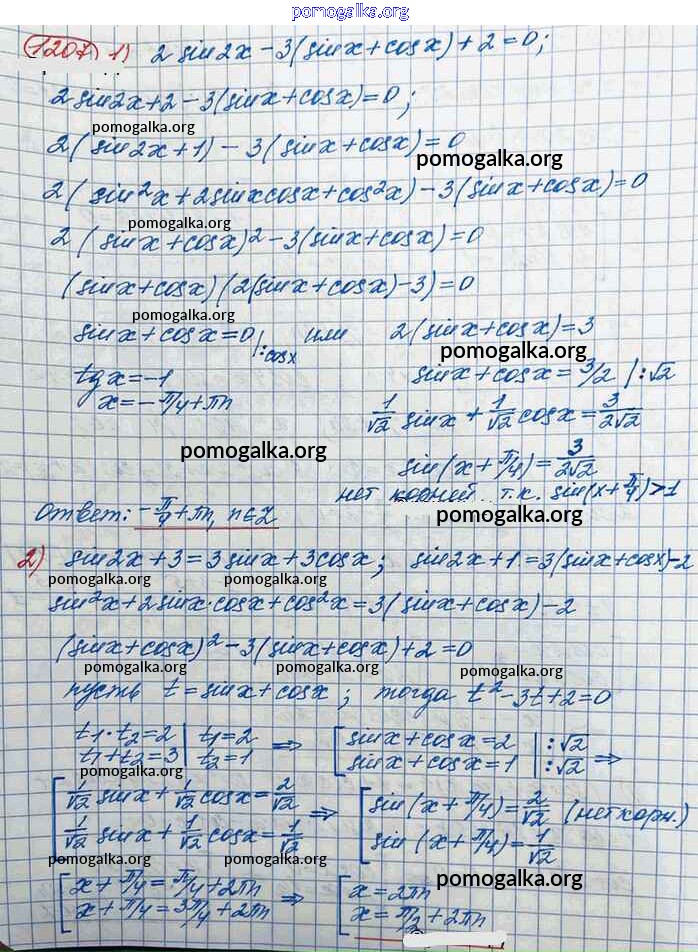 pomogalka.org
1207 1) 2 sin2x − 3(sinx + cosx) + 2 = 0;
2 sin2x + 2 − 3(sinx + cosx) = 0;
pomogalka.org
2(sin2x + 1) − 3(sinx + cosx) = 0
pomogalka.org
2(sin²x + 2sinxcosx + cos²x) − 3(sinx + cosx) = 0
pomogalka.org
2(sinx + cosx)² − 3(sinx + cosx) = 0
(sinx + cosx)(2(sinx + cosx) − 3) = 0
pomogalka.org
sinx + cosx = 0 |:cosx или 2(sinx + cosx) = 3
pomogalka.org
tgx = −1 sinx + cosx = 3/2 |:√2
x = −π/4 + πn 1/√2 sinx + 1/√2 cosx = 3/2√2
pomogalka.org
sin(x + π/4) = 3/2√2
нет корней т.к. sin(x + π/4) > 1
pomogalka.org
Ответ: −π/4 + πn, n∈Z
2) sin2x + 3 = 3sinx + 3cosx; sin2x + 1 = 3(sinx + cosx) − 2
pomogalka.org pomogalka.org pomogalka.org
sin²x + 2sinx·cosx + cos²x = 3(sinx + cosx) − 2
(sinx + cosx)² − 3(sinx + cosx) + 2 = 0
pomogalka.org pomogalka.org pomogalka.org
пусть t = sinx + cosx; тогда t² − 3t + 2 = 0
t₁·t₂ = 2 | t₁ = 2 ⇒ [ sinx + cosx = 2 |:√2
t₁ + t₂ = 3 | t₂ = 1 sinx + cosx = 1 |:√2 ⇒
pomogalka.org
[ 1/√2 sinx + 1/√2 cosx = 2/√2 ⇒ [ sin(x + π/4) = 2/√2 (нет корн.)
1/√2 sinx + 1/√2 cosx = 1/√2 sin(x + π/4) = 1/√2
pomogalka.org
pomogalka.org
[ x + π/4 = π/4 + 2πn ⇒ [ x = 2πn
x + π/4 = 3π/4 + 2πn x = π/2 + 2πn